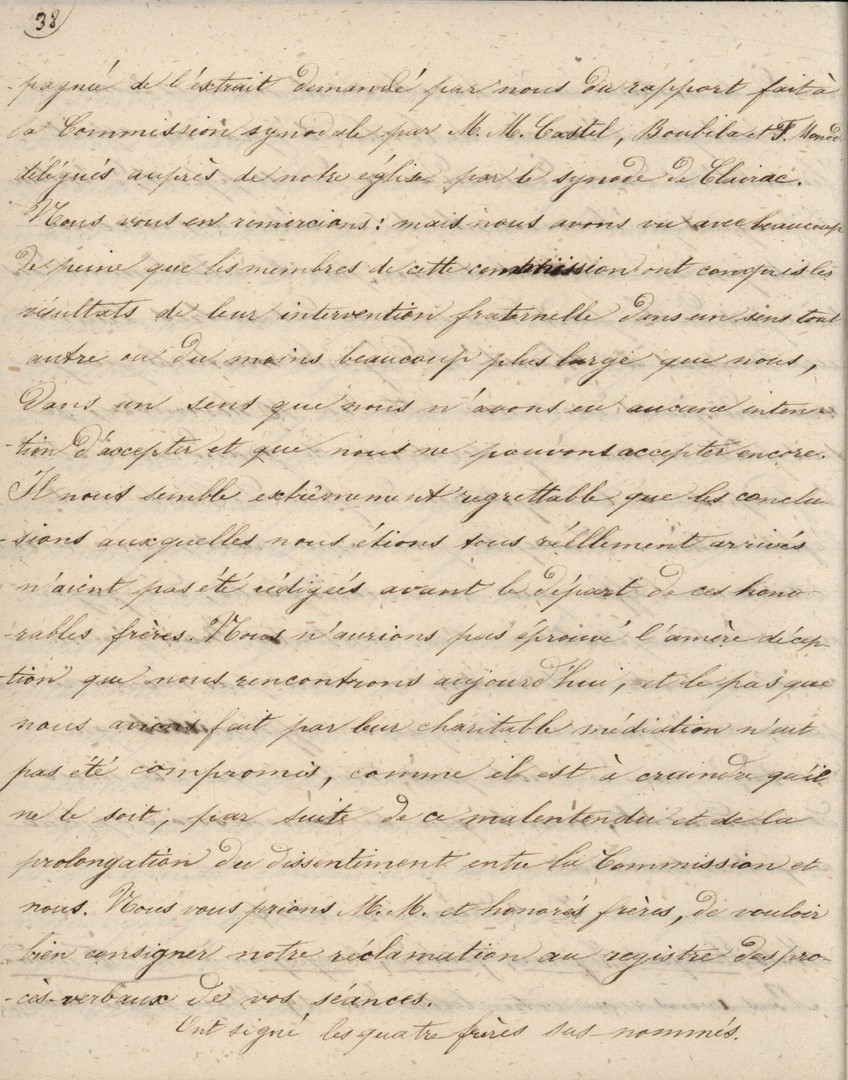 38
-pagnée de l'extrait demandé par nous du rapport fait à
la Commission synodale par M. M. Castel, Boubila et F. Monod
délégués auprès de notre église par le synode de Clairac.
Nous vous en remercions: mais nous avons vu avec beaucoup
de peine que les membres de cette commission ont compris les
résultats de leur intervention fraternelle dans un sens tout
autre ou du moins beaucoup plus large que nous,
dans un sens que nous n'avons eu aucune inten-
-tion d'accepter et que nous ne pouvons accepter encore.
Il nous semble extrêmement regrettable que les conclu
-sions auxquelles nous étions tous réellement arrivés
n'aient pas été rédigées avant le départ de ces hono-
-rables frères. Nous n'aurions pas éprouvé l'amère décep-
-tion que nous rencontrons aujourd'hui, et le pas que
nous avions fait par leur charitable médiation n'eut
pas été compromis, comme il est à craindre qu'il
ne le soit, par suite de ce malentendu et de la
prolongation du dissentiment entre la Commission et
nous. Nous vous prions M. M. et honorés frères, de vouloir
bien consigner notre réclamation au registre des pro-
-cès-verbaux de vos séances.
Ont signé les quatre frères sus-nommés.